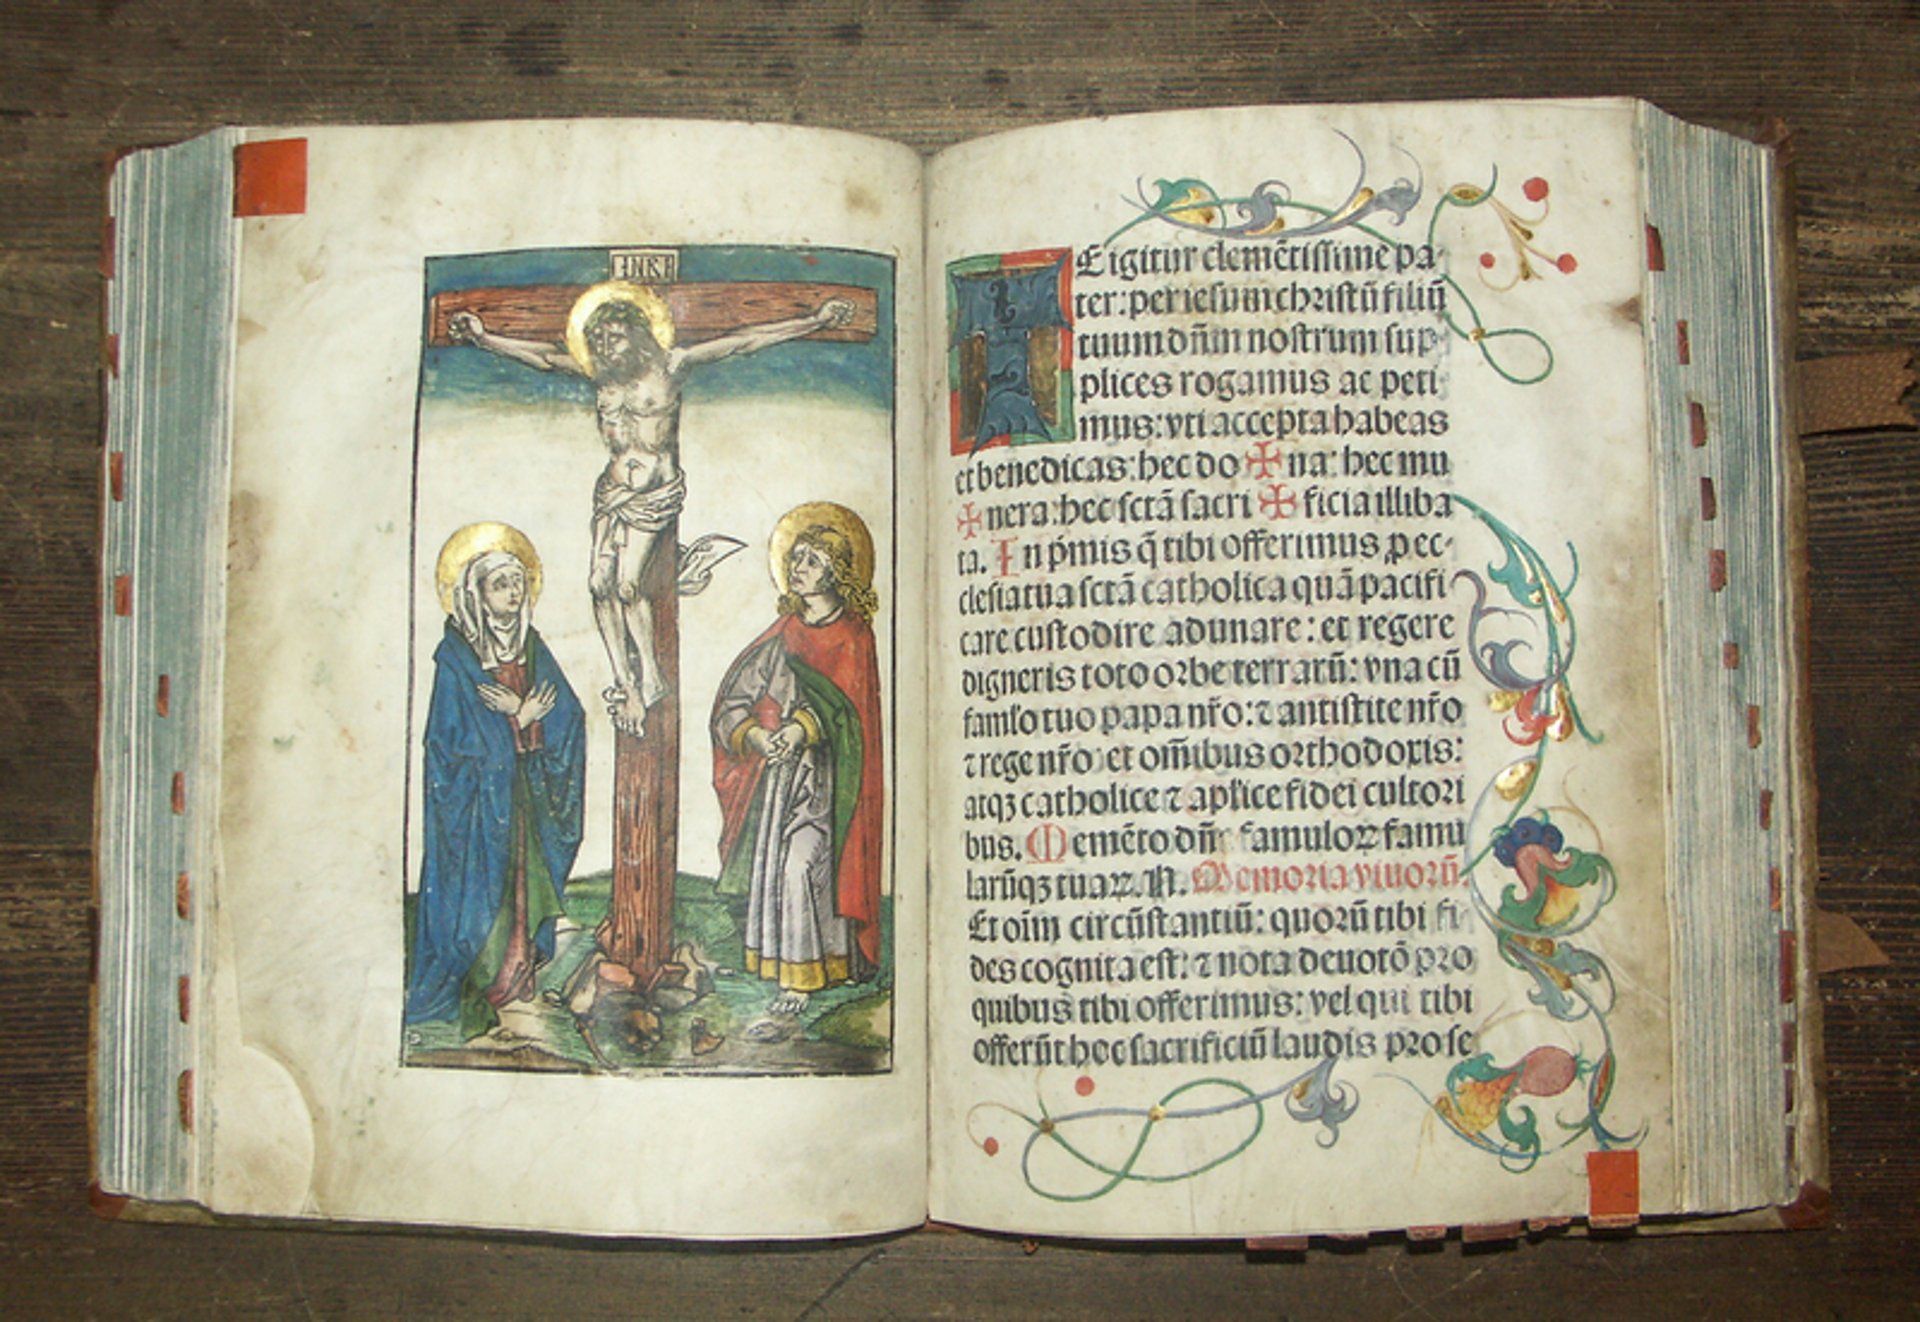 INRI
TE igitur clemētissime pa-
ter: per iesum christū filiū
tuum dn̄m nostrum sup-
plices rogamus ac peti-
mus: vti accepta habeas
et benedicas: hec do ✠ na: hec mu
✠ nera: hec sctā sacri ✠ ficia illiba
ta. In p̄mis q̄ tibi offerimus ꝓ ec-
clesia tua sctā catholica quā pacifi
care custodire adunare: et regere
digneris toto orbe terrarū: vna cū
famło tuo papa nr̄o: ⁊ antistite nr̄o
⁊ rege nr̄o et om̄ibus orthodoxis:
atqꝫ catholice ⁊ apłice fidei cultori
bus. Memēto dn̄e famuloꝝ famu
larūqꝫ tuaꝝ. N. Memoria viuorū.
Et oīm circūstantiū: quorū tibi fi-
des cognita est: ⁊ nota deuotō pro
quibus tibi offerimus: vel qui tibi
offerūt hoc sacrificiū laudis pro se